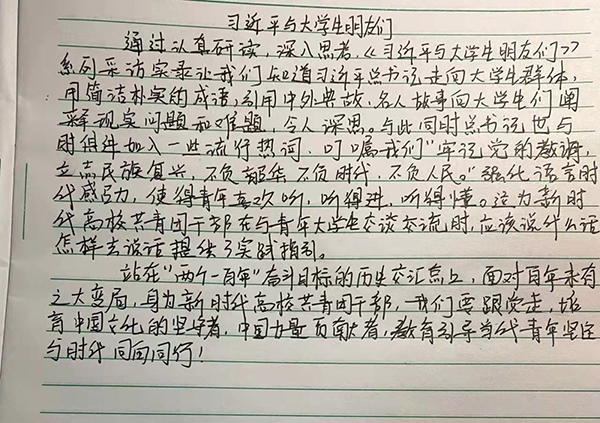 习近平与大学生朋友们
通过认真研读，深入思考，《习近平与大学生朋友们》
系列采访实录让我们知道习近平总书记走向大学生群体，
用简洁朴实的成语，引用中外典故，名人故事向大学生们阐
释现实问题和难题，令人深思。与此同时总书记也与
时俱进加入一些流行热词，叮嘱我们“牢记党的教诲，
立志民族复兴，不负韶华，不负时代，不负人民。”强化语言时
代感召力，使得青年喜欢听，听得进，听得懂。这为新时
代高校共青团干部在与青年大学生交谈交流时，应该说什么话
怎样去说话提供了实践指引。
站在“两个一百年”奋斗目标的历史交汇点上，面对百年未有
之大变局，身为新时代高校共青团干部，我们要跟党走，培
育中国文化的坚守者，中国力量贡献者，教育引导当代青年坚定
与时代同向同行！